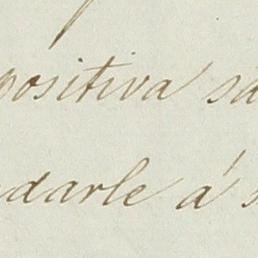 positiva sa
darle á s